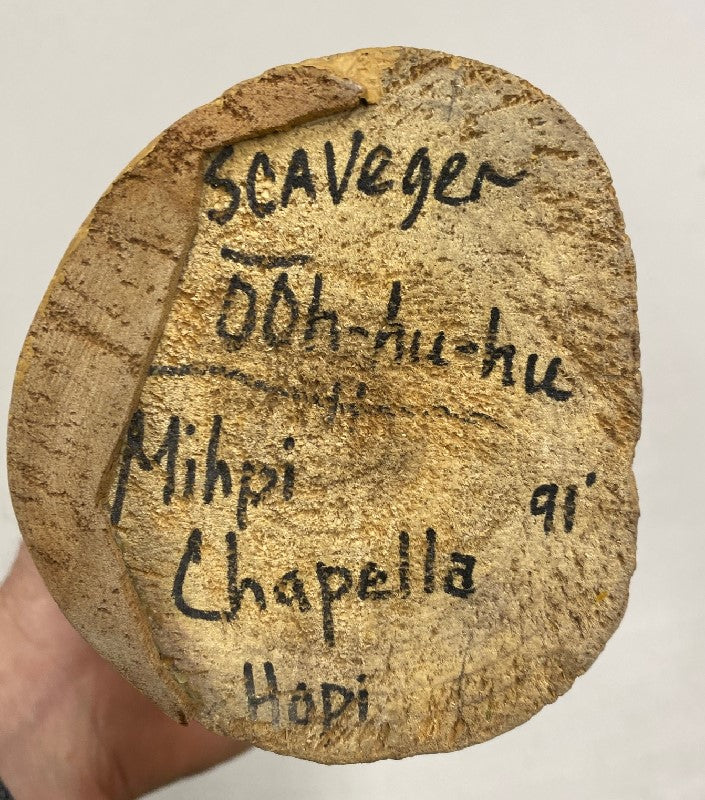 SCAVeger
ŌŌh-hu-hu
Mihpi
91'
Chapella
Hopi